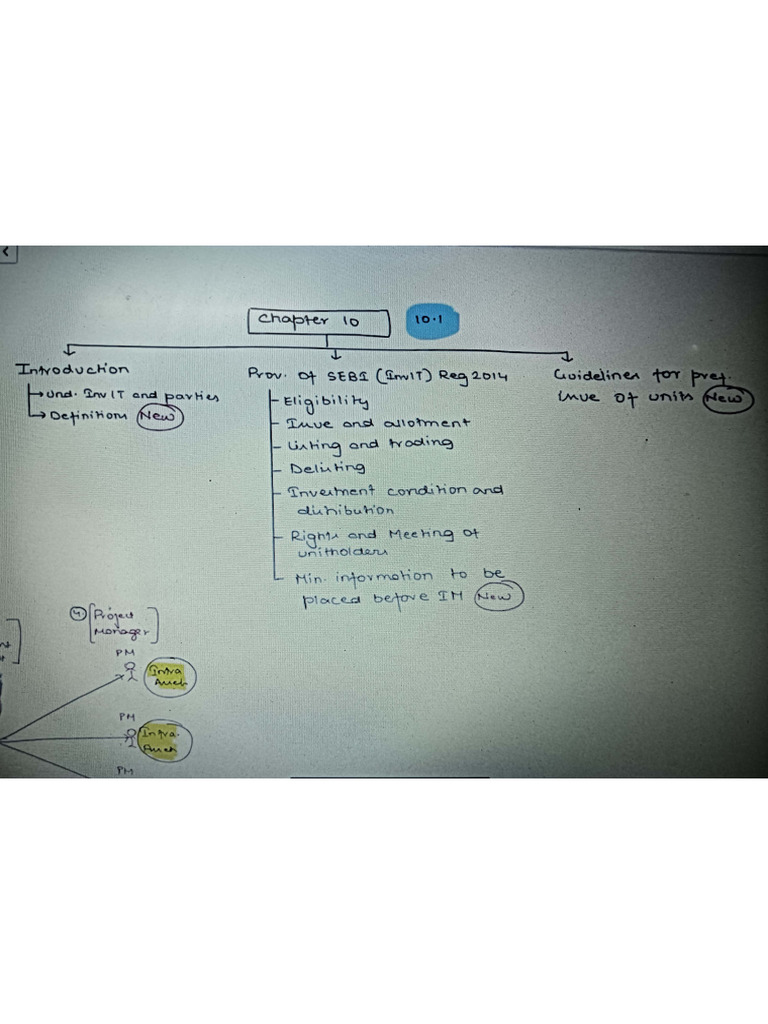 Chapter 10
10.1
Introduction
Und. InvIT and parties
Definitions New
Prov. of SEBI (InvIT) Reg 2014
Eligibility
Issue and allotment
Listing and trading
Delisting
Investment condition and
distribution
Rights and Meeting of
unitholders
Min. information to be
placed before IM New
Guidelines for pref.
issue of units New
4. Project
Manager
PM
Infra
PM
Infra
PM